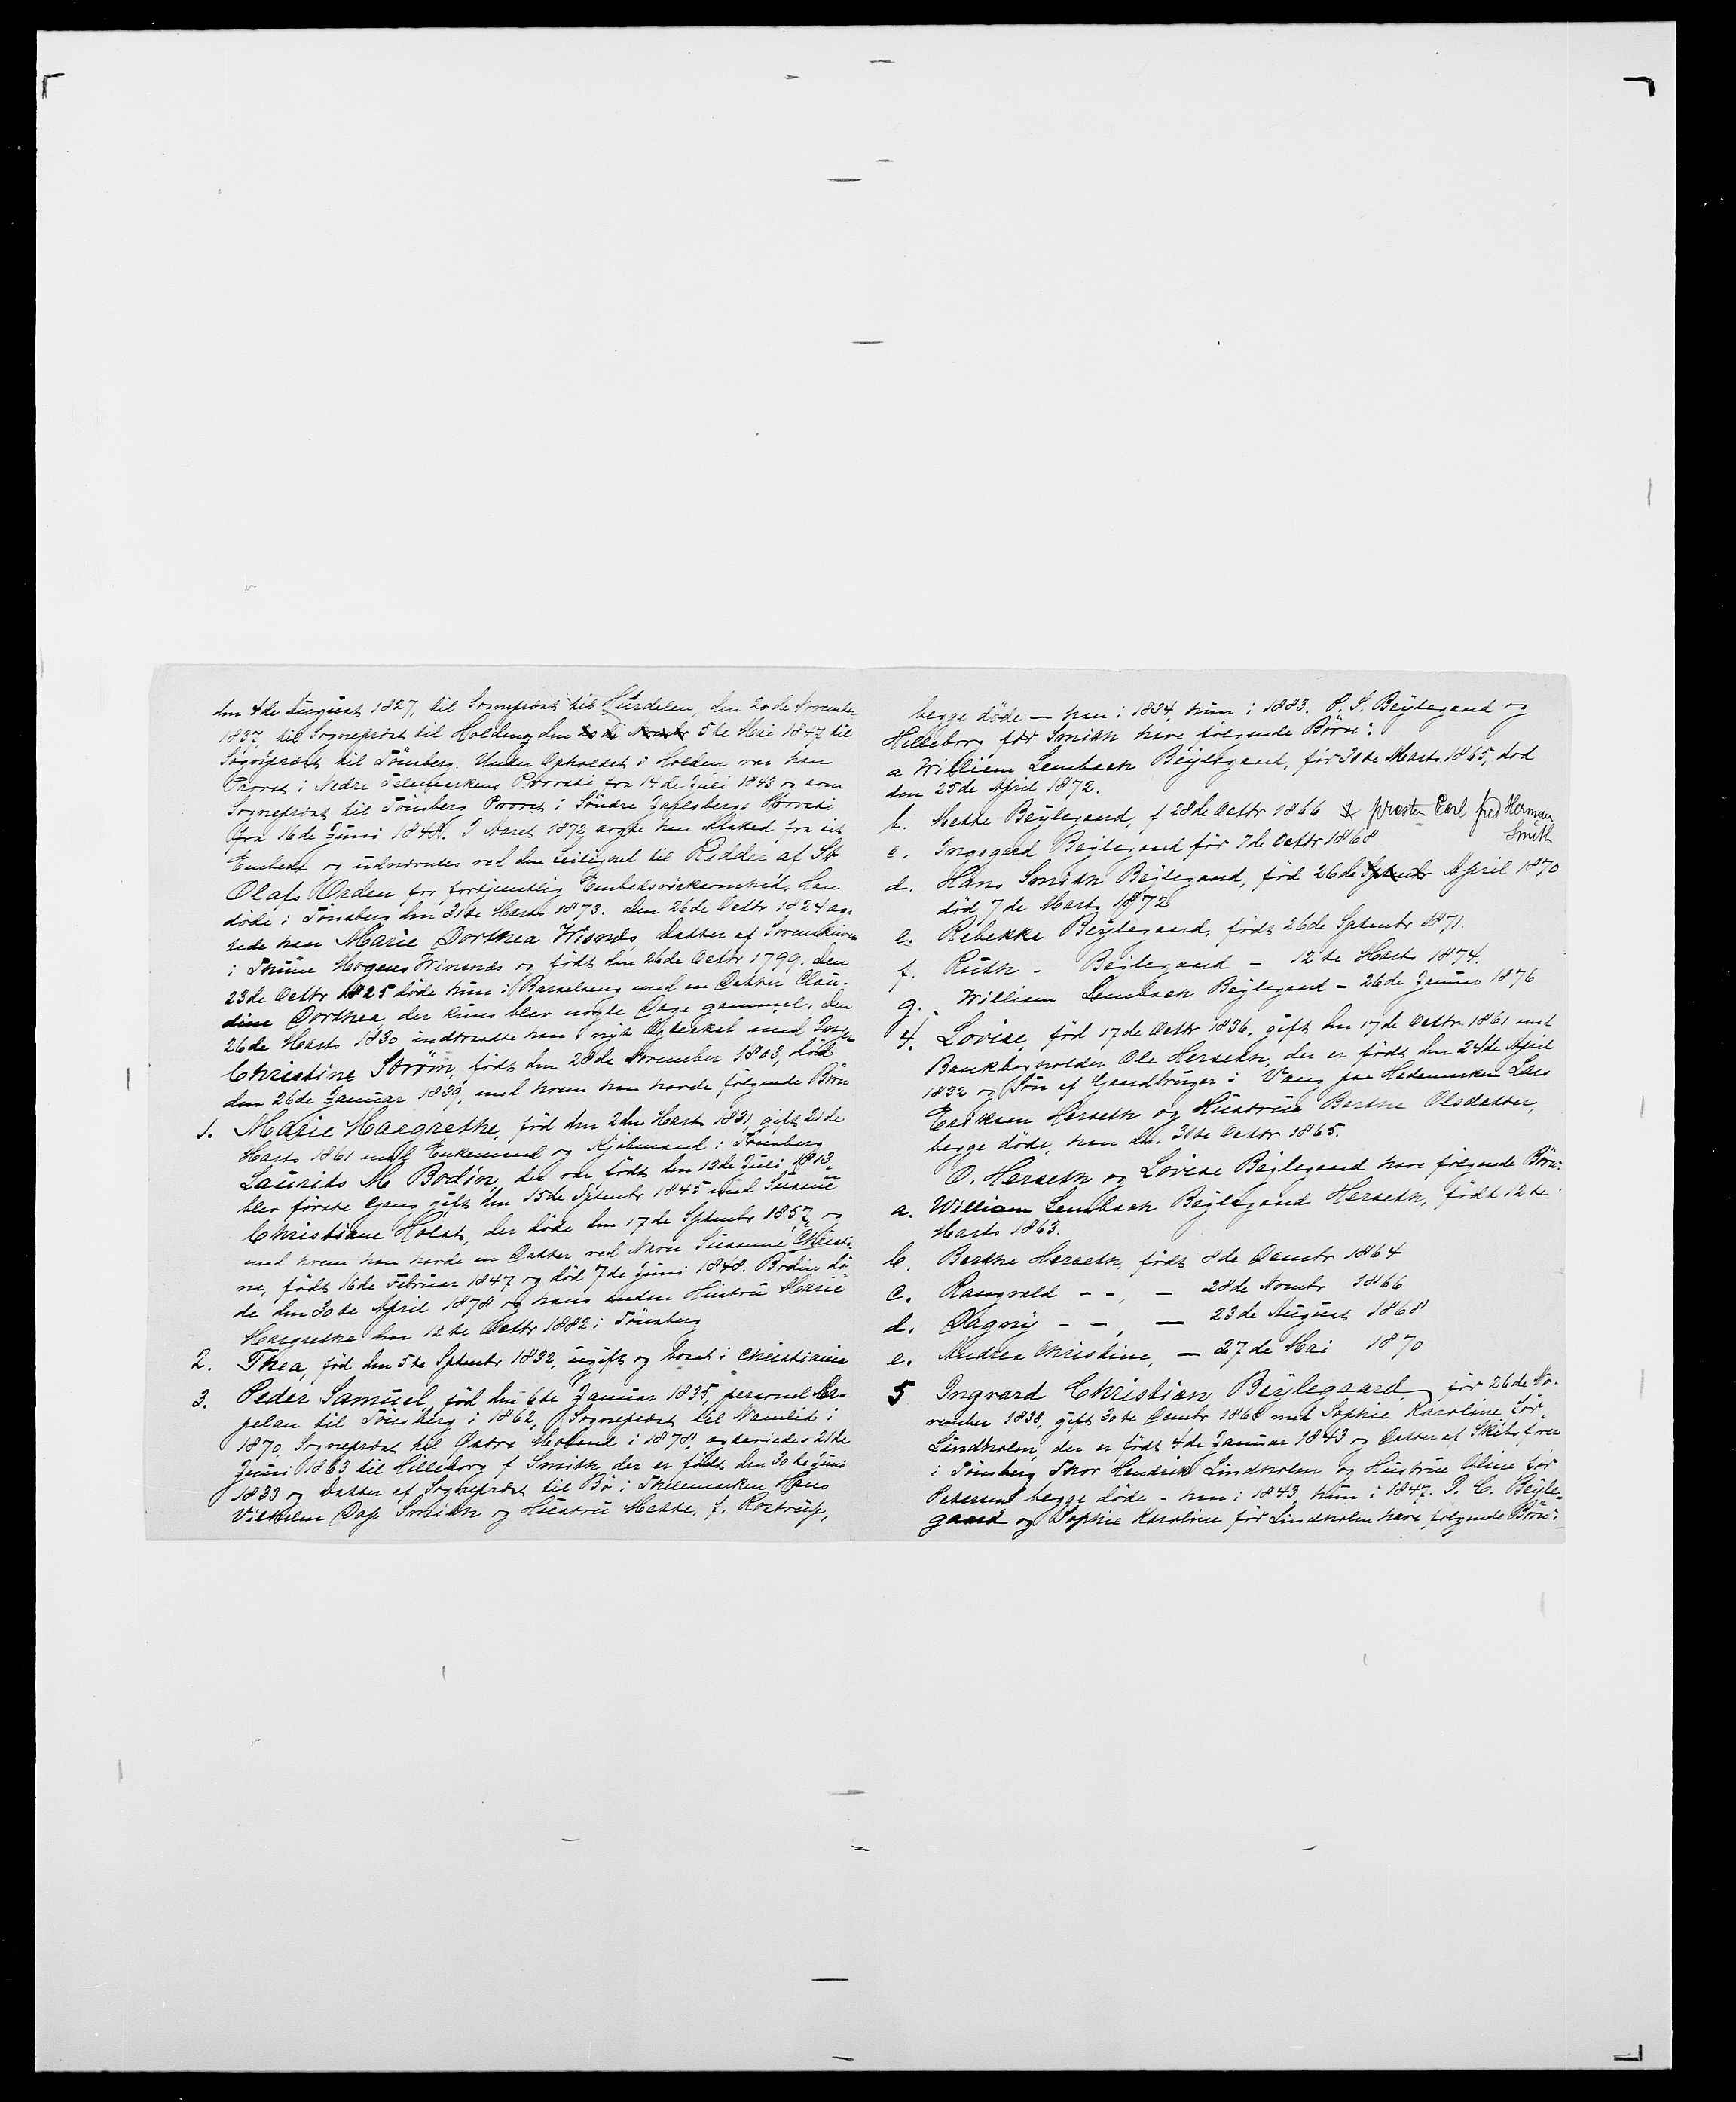 den 4de August 1827, til Sogneprest til Hurdalen, den 20de November
1837, til Sogneprest til Holden og den 5te Mai 1847 til
Sogneprest til Tönsberg. Under Opholdet i Holden var han
Provst i Nedre Telemarkens Provsti fra 14de Juli 1843 og som
Sogneprest til Tönsberg Provst i Söndre Jarlsbergs Provsti
fra 16de Juni 1848. I Maret 1872, han Afsked fra sit
Embede og udnævntes ved den Leilighed til Ridder af St
Olafs Orden for fortjenstlig Embedsvirksomhed. Han
döde i Tönsberg den 31te Marts 1873. Den 26de Octbr 1824 æg-
tede han Marie Dorthea Datter af Sorenskriver
i Mogens og födt den 26de Octbr 1799. Den
23de Octbr 1825 döde hun i Barselseng med en Datter Clau-
dine Dorthea der kuns blev nogle Dage gammel. Den
26de Marts 1830 indtraadte han i nyt Ægteskab med Inger
Christine Ström, födt den 28de November 1803, död
den 26de Januar 1839, med hvem han havde fölgende Börn
1. Marie Margrethe, föd den 2den Marts 1831, gift 21de
Marts 1861 med Enkemand og Kjöbmand i Tönsberg
Laurits M Bodin, der var födt den 13de Juli 1813,
blev förste Gang gift den 15de Septembr 1845 med Susanne
Christiane Holst, der döde den 17de Septembr 1857, og
med hvem han havde en Datter ved Navn Susanne Christi-
ne, födt 16de Februar 1847 og död 7de Juni 1848. Bodin dö-
de den 30te April 1878 og hans anden Hustru Marie
Margrethe den 12te Octbr 1882 i Tönsberg
2. Thea, föd den 5te Septembr 1832, ugift og bosat i Christiania
3. Peder Samuel, föd den 6te Januar 1835, personel Ka-
pelan til Tönsberg i 1862, Sogneprest til Namlid i
1870, Sogneprest til Östre Moland i 1878, ægteviedes 21de
Juni 1863 til Hilleborg f Smith, der er födt den 30te Juni
1833 og Datter af Sogneprest til Bö i Thelemarken Hans
Vilhelm Dop Smith og Hustru Mette, f. Rostrup,
begge döde — han i 1834, hun i 1883. P. S. Bejlegaard og
Hilleborg för Smith have fölgende Börn:
a William Lembach Bejlegaard, för 30te Marts 1865, död
den 25de April 1872.
b. Mette Bejlegaard, f 28de Octbr 1866 prosten Carl fred Herman
Smith
c. Ingegerd Bejlegaard för 7de Octbr 1868
d. Hans Smith Bejlegaard, föd 26de Septembr April 1870
död 7de Marts 1872
e. Rebekka Bejlegaard, födt 26de Septembr 1871.
f. Ruth - Bejlegaard - 12te Marts 1874.
g. William Lembach Bejlegaard - 26de Januar 1876
4. Lovise, föd 17de Octbr 1836, gift den 17de Octbr 1861 med
Bankbogholder Ole Herseth, der er födt den 24de April
1832 og Sön af Gaardbruger i Vang paa Hedemarken Lars
Eriksen Herseth og Hustrue Berthe Olsdatter,
begge döde, han den 30te Octbr 1865.
O. Herseth og Lovise Bejlegaard have fölgende Börn:
a. William Lembach Bejlegaard Herseth, födt 12te
Marts 1863.
b. Berthe Herseth, födt 8de Decmbr 1864
c. Rangvald - -, - 28de Novmbr 1866
d. Dagny - -, — 23de August 1868
e. Andrea Christine, — 27de Mai 1870
5 Ingvard Christian Bejlegaard, för 26de No-
vember 1838, gift 30te Decmbr 1868 med Sophie Karoline för
Lindholm, der er födt 4de Januar 1843 og Datter af Skibsförer
i Tönsberg Thor Hendrik Lindholm og Hustrue Oline för
Petersen begge döde - han i 1843, hun i 1847. I. C. Bejle-
gaard og Sophie Karoline för Lindholm have fölgende Börn: